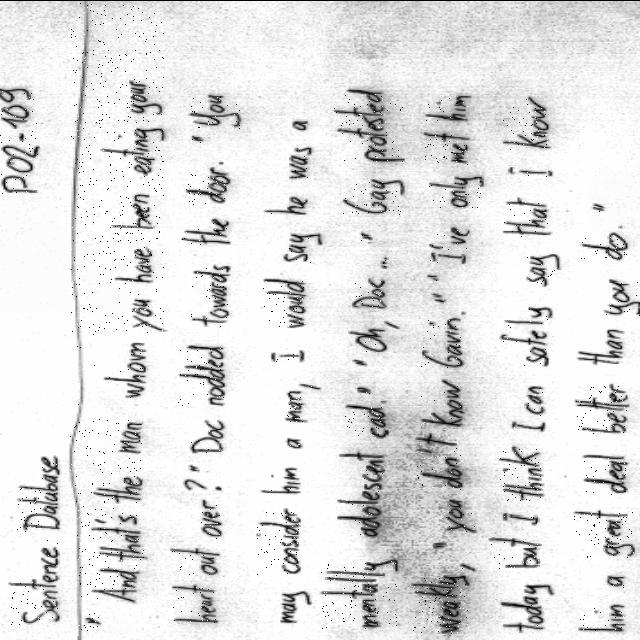 Sentence Database P02-109
"And that's the man whom you have been eating your
heart out over?" Doc nodded towards the door. "You
may consider him a man, I would say he was a
mentally adolescent cad." "Oh, Doc..." Gay protested
weakly, "you don't know Gavin." "I've only met him
today but I think I can safely say that I know
him a great deal better than you do."